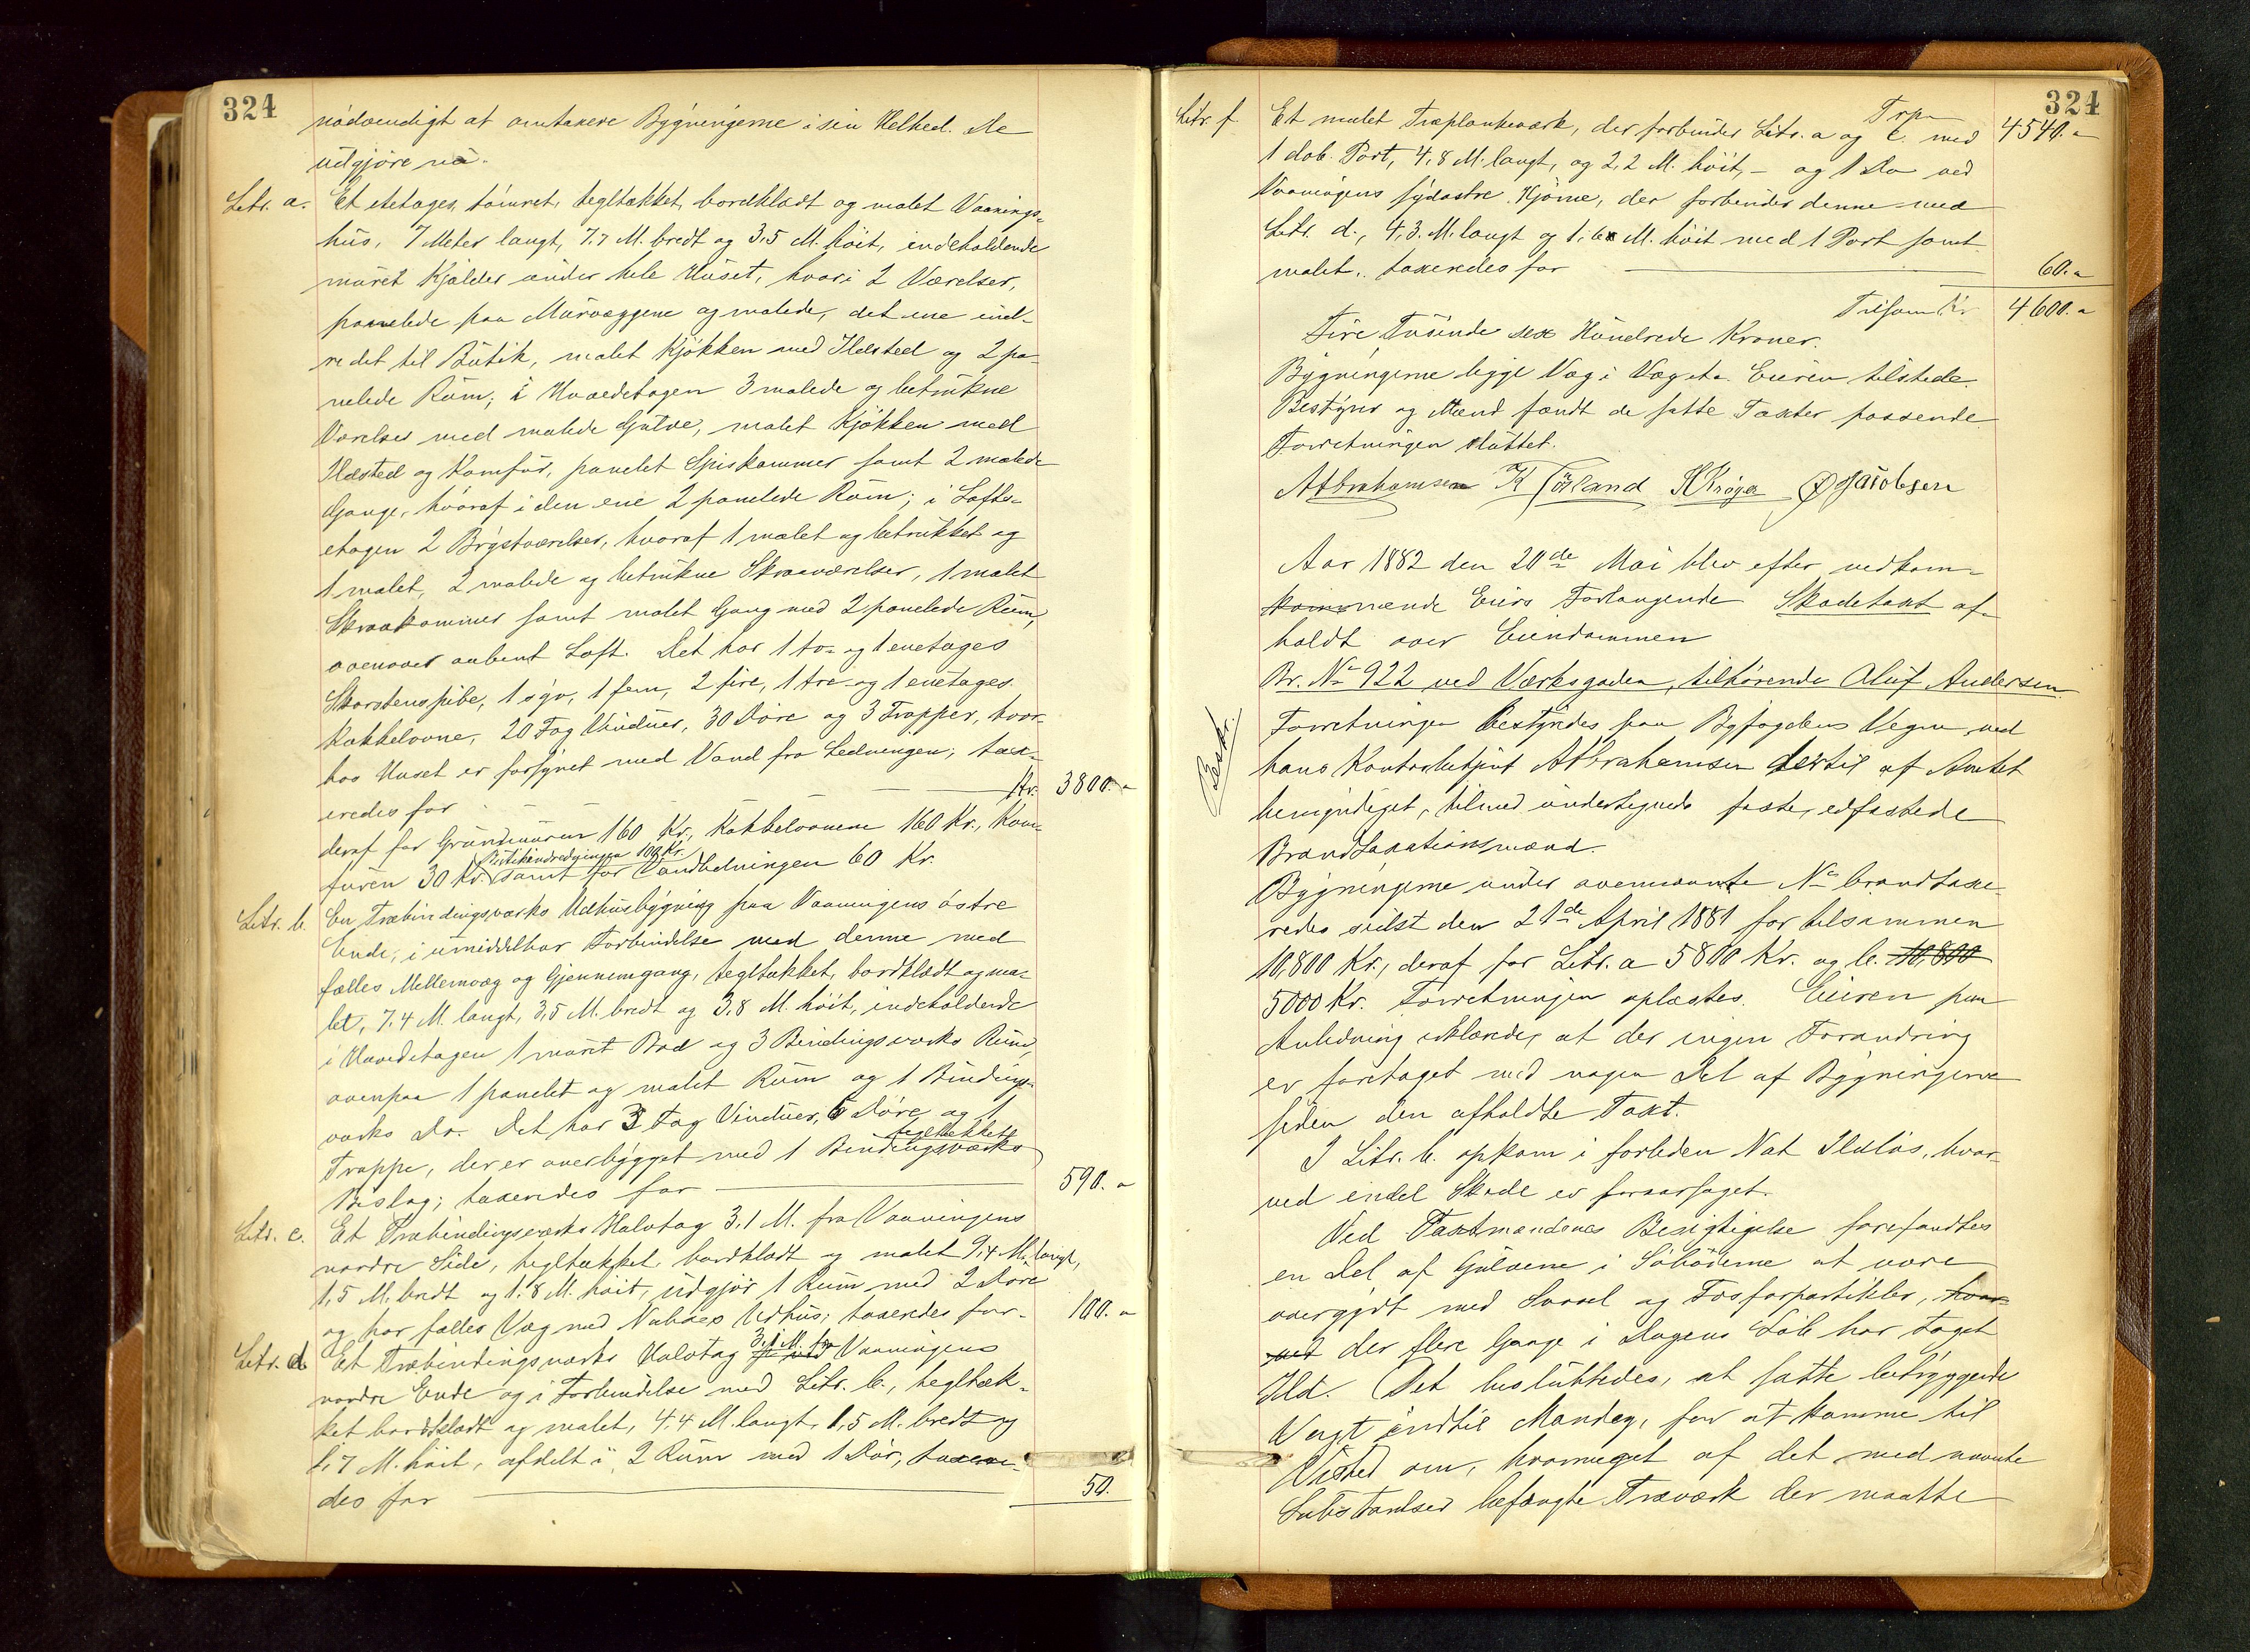 324
nødvendigt at omtaxere Bygningerne i sin Helhed. De
udgjøre nu:
Litr. a. Et etetages, tømret, tegltækket, bordklædt og malet Vaanings-
hus, 7 Meter langt, 7.7 M. bredt og 3,5 M. høit, indeholdende
muret Kjælder under hele Huset, hvori 2 Værelser,
panelede paa Murvæggene og malede, det ene ind-
redet til Butik, malet Kjøkken med Ildsted og 2 pa-
nelede Rum; i Hovedetagen 3 malede og betrukne
Værelser med malede Gulve, malet Kjøkken med
Ildsted og Komfur, panelet Spiskammer samt 2 malede
Gange, hvoraf i den ene 2 panelede Rum; i Lofts-
etagen 2 Brystværelser, hvoraf 1 malet og betrukket og
1 malet, 2 malede og betrukne Skraaværelser, 1 malet
Skraakammer samt malet Gang med 2 panelede Rum,
ovenover aabent Loft. Det har 1 to- og 1 enetages
Skorstenspibe, 1 syv, 1 fem, 2 fire, 1 tre og 1 enetages
Kakkelovne, 20 Fag Vinduer, 30 Døre og 3 Trapper, hvor-
hos Huset er forsynet med Vand fra Ledningen; tax-
eredes for Kr. 3800.-
deraf for Grundmuren 160 Kr., Kakkelovnene 160 Kr., Kom-
furen 30 Kr. Butikindredningen 100 Kr. samt for Vandledningen 60 Kr.
Litr. b. En Træbindingsværks Udhusbygning paa Vaaningens østre
Ende, i umiddelbar Forbindelse med denne med
fælles Mellemvæg og Gjennemgang, tegltækket, bordklædt og ma-
let, 7.4 M. langt, 3,5 M. bredt og 3,8 M. høit, indeholdende
i Hovedetagen 1 muret Bod og 3 Bindingsværks Rum,
ovenpaa 1 panelet og malet Rum og 1 Bindings-
værks Do. Det har 3 Fag Vinduer, 6 Døre og 1
Trappe, der er overbygget med 1 tegltækket Bindingsværks
Bislag; taxeredes for 590.-
Litr. c. Et Træbindingsværks Halvtag 3.1 M. fra Vaaningens
nordre Side, tegltækket, bordklædt og malet 9.4 M. langt,
1,5 M. bredt og 1.8 M. høit, udgjør 1 Rum med 2 Døre
og har fælles Væg med Naboes Udhus; taxeredes for 100.-
Litr. d. Et Træbindingsværks Halvtag 3,1 M. fra Vaaningens
nordre Ende og i Forbindelse med Litr. b., tegltæk-
ket bordklædt og malet, 4.4 M. langt, 1,5 M. bredt og
1,7 M. høit, afdelt i 2 Rum med 1 Dør, taxere-
des for 50.
324
Trpr. 4540.-
Litr. f. Et malet Træplankeværk, der forbinder Litr. a og c. med
1 dob. Port, 4,8 M. langt, og 2,2 M. høit, - og 1 Do ved
Vaaningens sydøstre Hjørne, der forbinder denne med
Litr. d., 4,3. M. langt og 1,6 M. høit med 1 Port samt
malet, taxeredes for 60.-
Tilsam Kr 4600.-
Fire Tusinde sex Hundrede Kroner.
Bygningerne ligge Væg i Væg etc. Eieren tilstede.
Bestyrer og Mænd fandt de satte Taxter passende
Forretningen sluttet.
A Abrahamsen K Førland H Krøger O Jacobsen
Aar 1882 den 20de Mai blev efter vedkom-
mende Eiers Forlangende Skadetaxt af-
holdt over Eiendommen
Br. No 922 ved Værksgaden, tilhørende Oluf Andersen.
Bestr.
Forretningen bestyredes paa Byfogdens Vegne ved
hans Kontorbetjent A Abrahamsen dertil af Amtet
bemyndiget, tilmed undertegnede faste, edfæstede
Brandtaxationsmænd.
Bygningerne under ovennævnte No brandtaxe-
redes sidst den 21de April 1881 for tilsammen
10,800 Kr., deraf for Litr. a 5800 Kr. og b. 10,800
5000 Kr. Forretningen oplæstes. Eieren paa
Anledning erklærede, at der ingen Forandring
er foretaget med nogen Del af Bygningerne
siden den afholdte Taxt.
I Litr. b. opkom i forleden Nat Ildløs, hvor-
ved endel Skade er foraarsaget.
Ved Taxtmændenes Besigtigelse forefandtes
en Del af Gulvene i Søboderne at være
overgydt med Svovel og Fosforpartikler, hvor-
ved der flere Gange i Dagens Løb har taget
Ild. Det besluttedes, at sætte betryggende
Vagt indtil Mandag, for at komme til
Vished om, hvormeget af det med nævnte
Substantser befængte Træværk der maatte